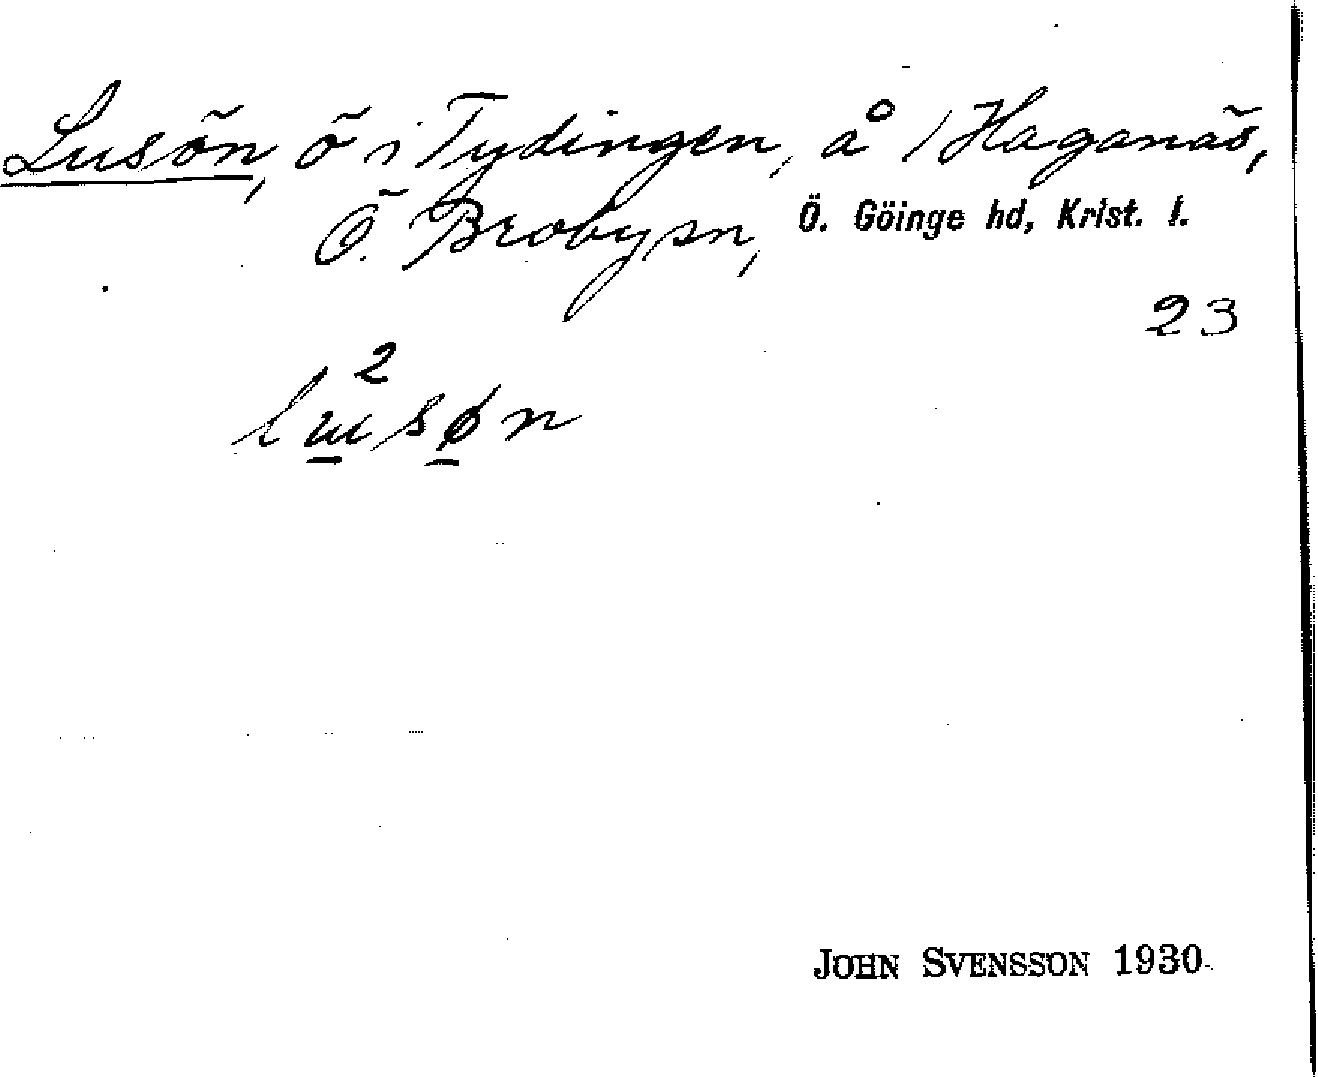 Lusön, ö i Tydingen, å 1 Haganäs,
Ö. Broby sn, Ö. Göinge hd, Krist. l.
23
2
lusøn
JOHN SVENSSON 1930